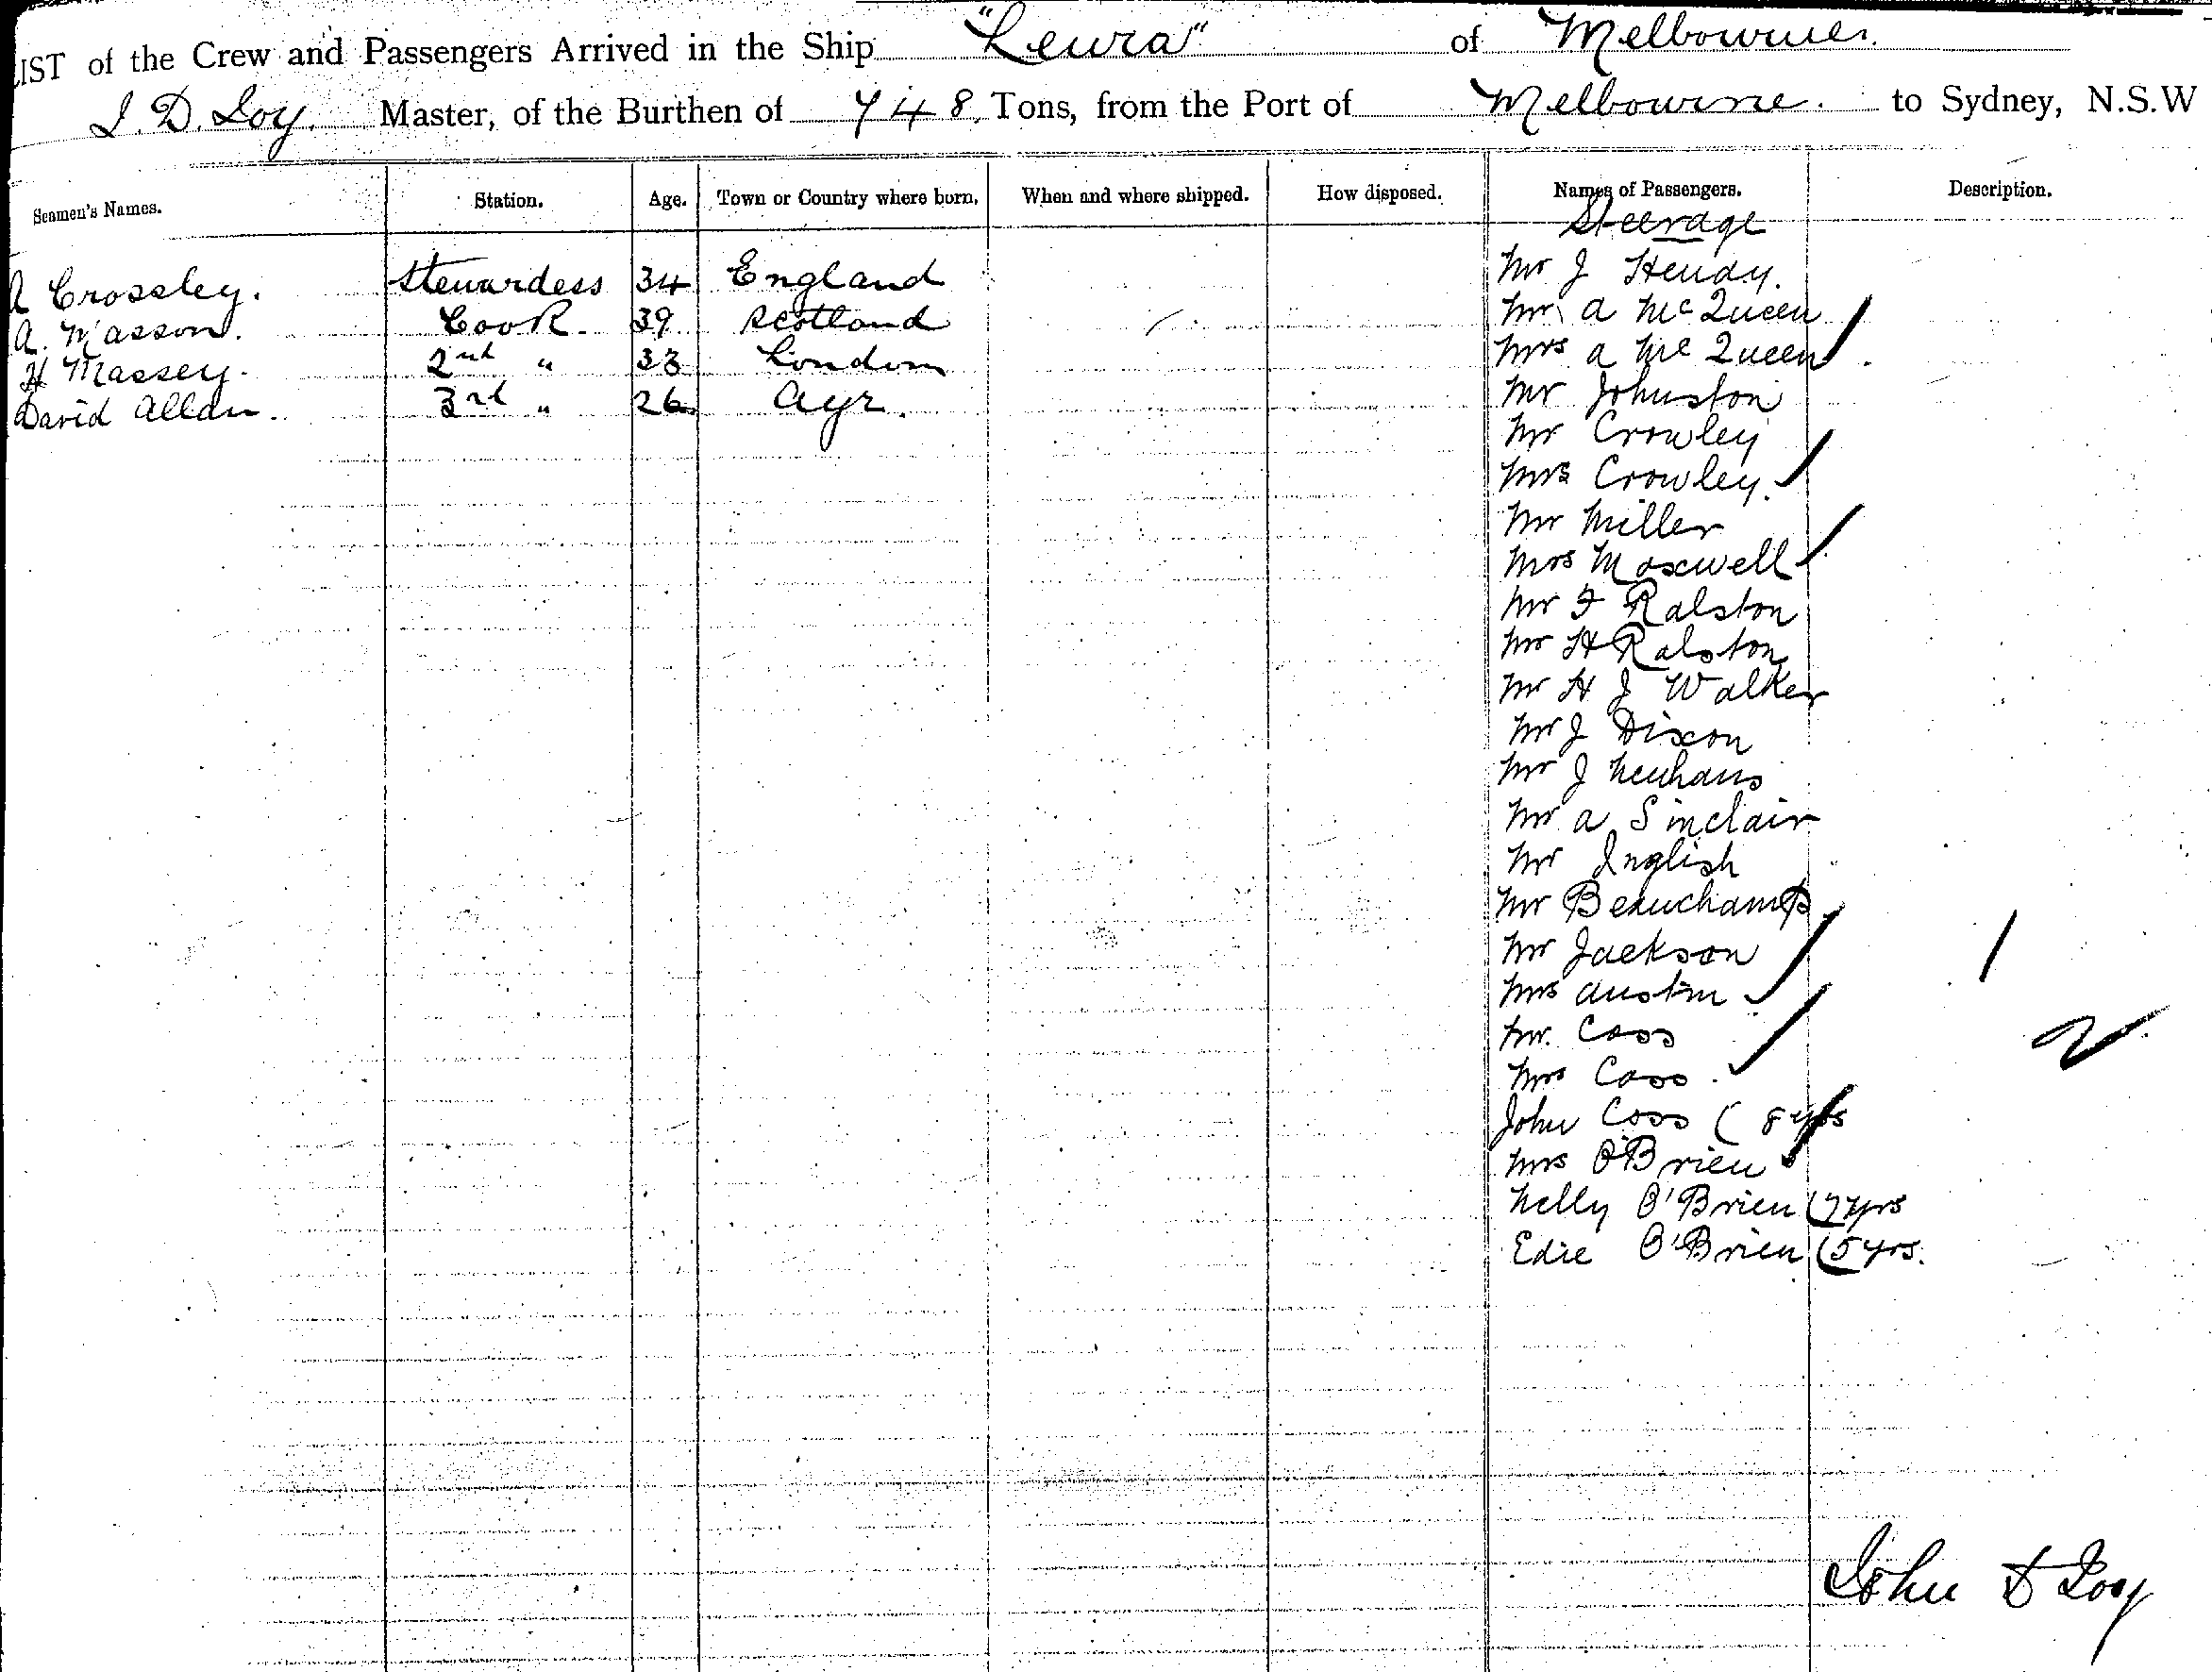 LIST of the Crew and Passengers Arrived in the Ship "Leura" of Melbourne.
J. D. Loy. Master, of the Burthen of 748 Tons, from the Port of Melbourne. to Sydney, N.S.W
Seamen's Names. Station. Age. Town or Country where born. When and where shipped. How disposed. Names of Passengers. Description.
Steerage
A Crossley. Stewardess 34 England
A. Masson. Cook. 39 Scotland
H Massey. 2nd " 33 London
David Allan. 3rd " 26 Ayr.
Mr J Hendy.
Mr A McQueen
Mrs A McQueen
Mr Johnston
Mr Crowley
Mrs Crowley.
Mr Miller
Mrs Maxwell
Mr F Ralston
Mr H Ralston
Mr H J Walker
Mr J Dixon
Mr J Neuhaus
Mr A Sinclair
Mr Inglish
Mr Beauchamp
Mr Jackson
Mrs Austin
Mr. Cass
Mrs Cass.
John Cass (8 yrs
Mrs O'Brien
Nelly O'Brien (7 yrs
Edie O'Brien (5 yrs.
John D Loy